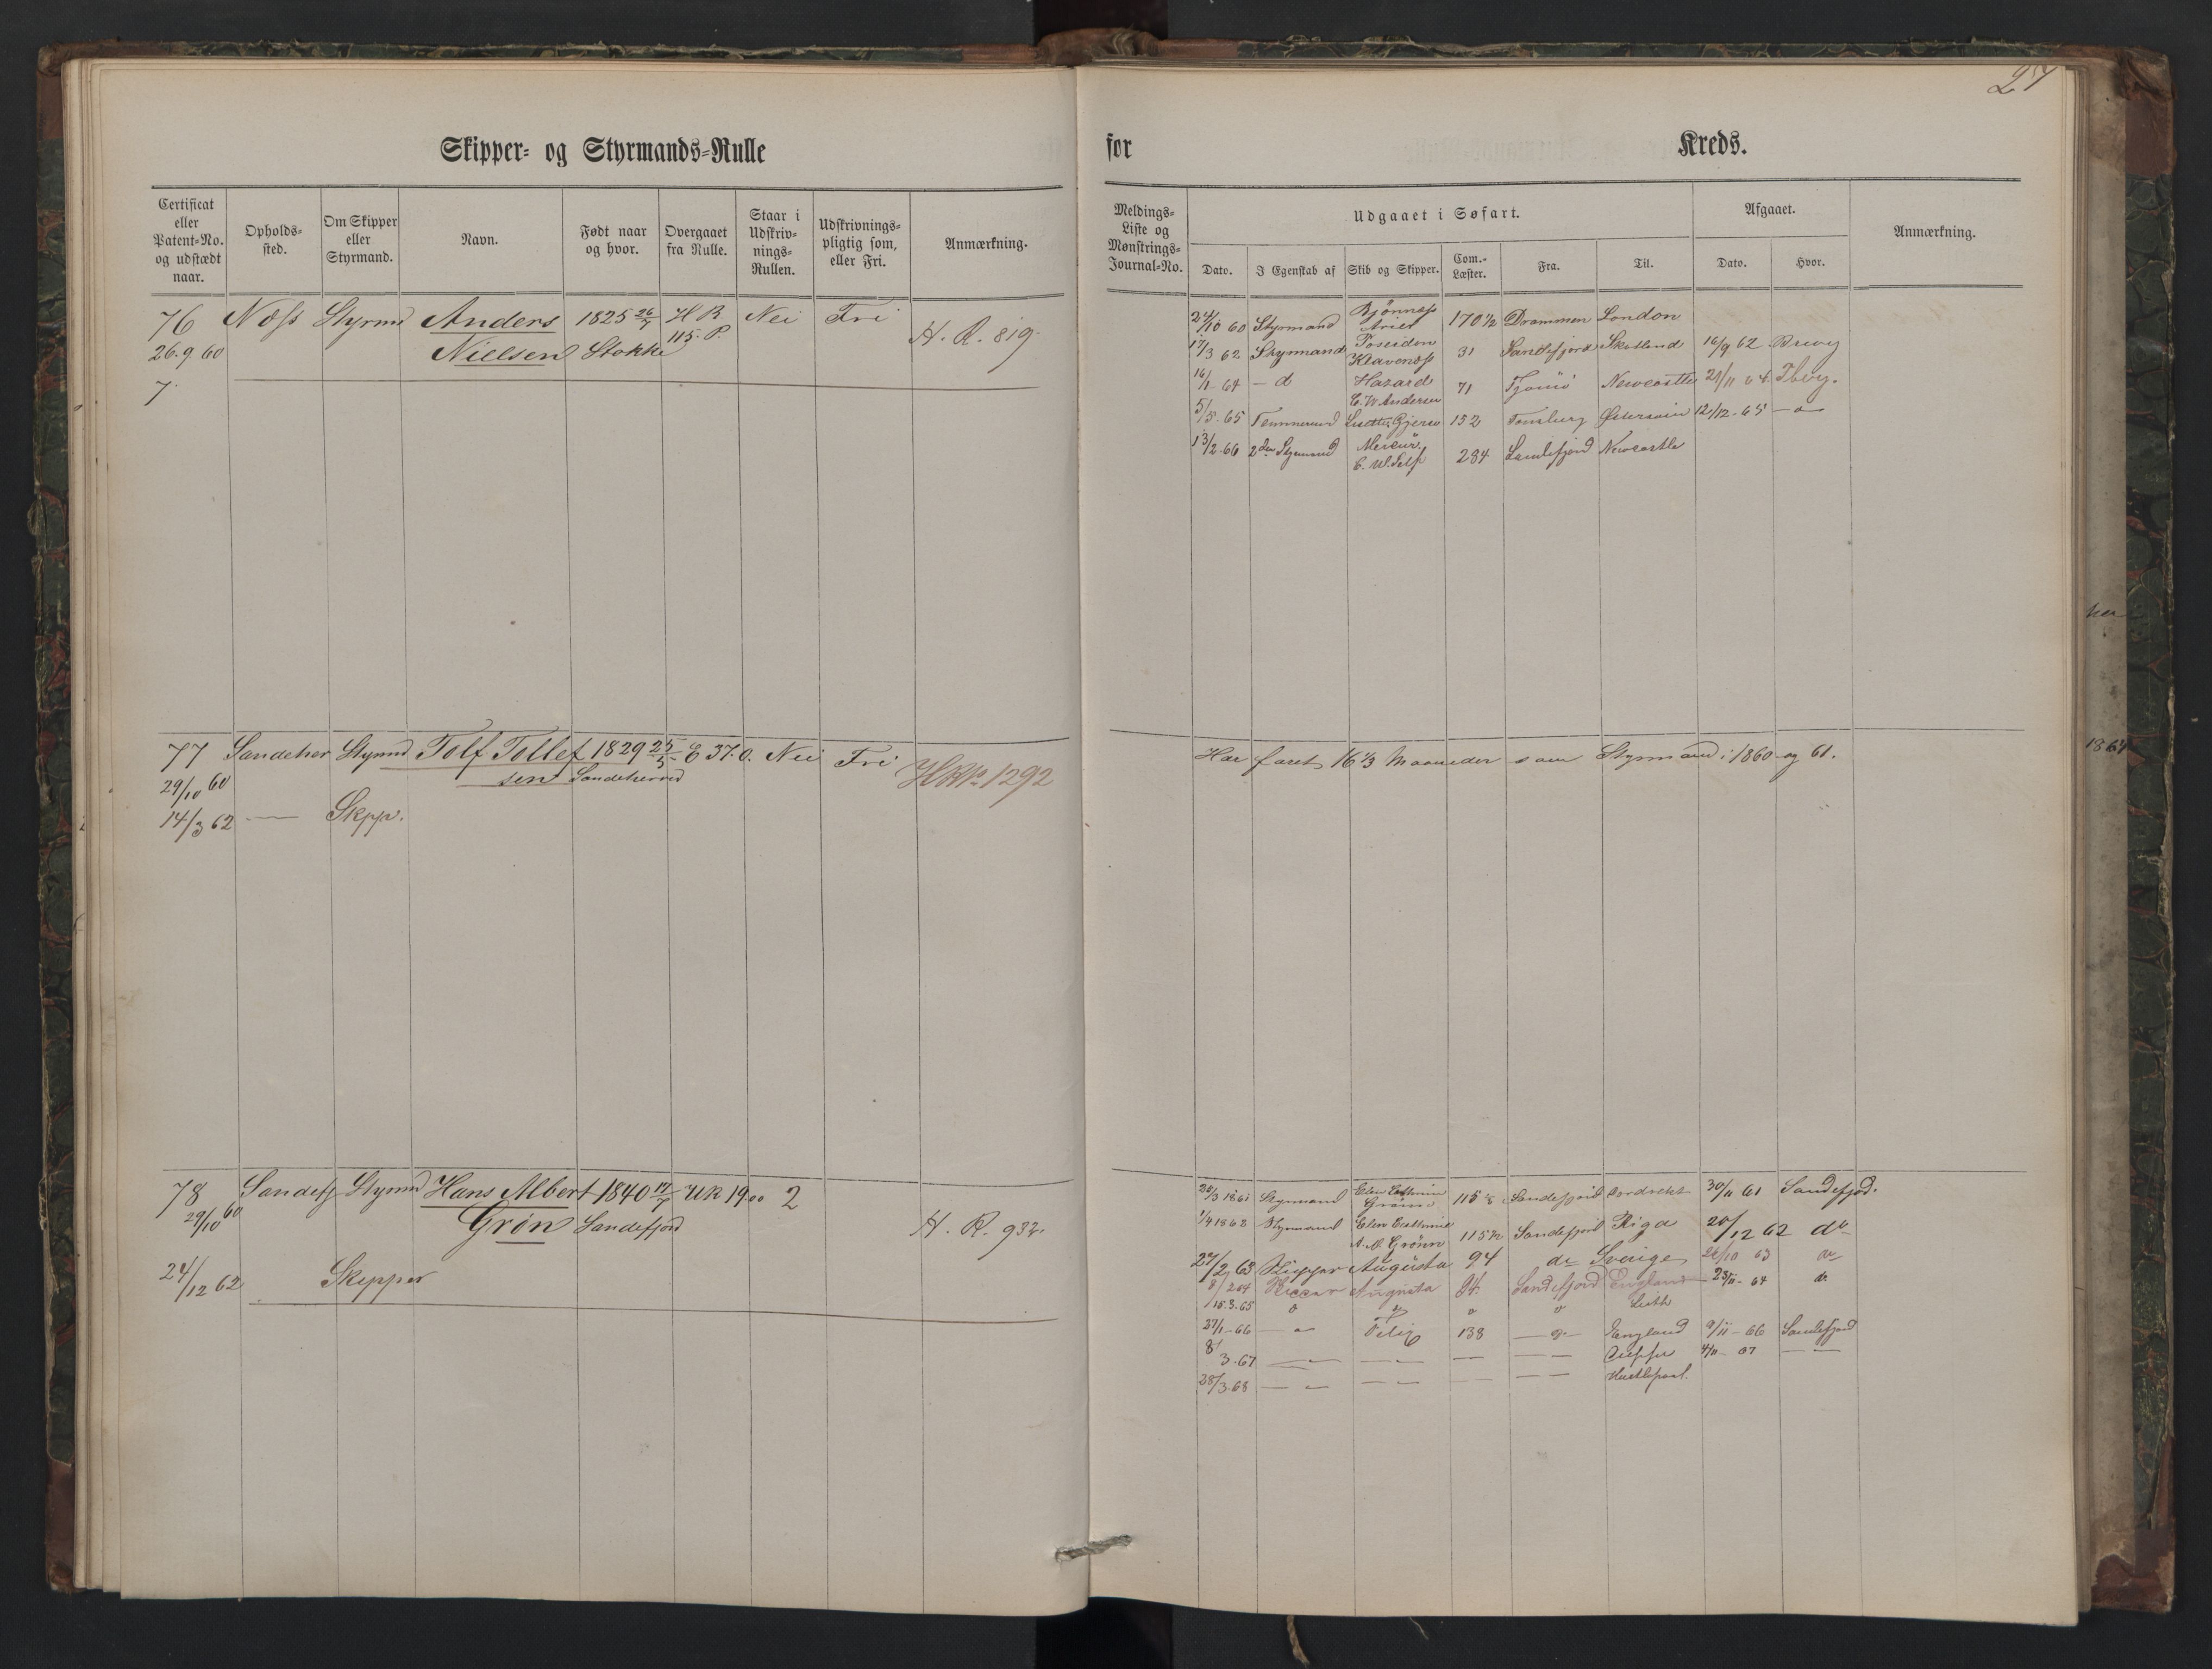 27
Skipper- og Styrmands-Rulle
for Kreds.
Certificat eller Patent-No. og udstædt naar.
Opholdssted.
Om Skipper eller Styrmand.
Navn.
Født naar og hvor.
Overgaaet fra Rulle.
Staar i Udskrivnings-Rullen.
Udskrivningspligtig som, eller Fri.
Anmærkning.
Meldings-Liste og Mønstrings-Journal-No.
Udgaaet i Søfart.
Dato.
I Egenskab af
Skib og Skipper.
Com.-Læster.
Fra.
Til.
Afgaaet.
Dato.
Hvor.
Anmærkning.
76 Næss Styrmd Anders 1825 26/7 H R Nei Fri
26.9 60 Nielsen Stokke 115. P. H. R. 819
7.
24/10 60 Styrmand Bjønness 170 1/2 Drammen London
17/3 62 Styrmand Poseidon Klavenæss 31 Sandefjord Skotland 16/9 62 Brevig
16/1 64 — d Hazard C. W. Andersen 71 Tjømø Newcastle 29/11 64 Tberg.
5/5. 65 Tømmermd Lisette, Gjerso 152 Tønsberg Østersøen 12/12 - 65 — d
13/2. 66 2den Styrmand Mercur, 284 Sandefjord Newcastle
77 Sandeher Styrmd Tolf Tollef 1829 25/5 E 37.0. Nei Fri
29/10 60 sen Sandeherred HR No 1292
14/3 62 — Skpp.
Har faret 16 1/3 Maaneder som Styrmand i 1860 og 61.
78 Sandefj Styrmd Hans Albert 1840 17/7 UK 19.00 2
29/10 60 Grøn Sandefjord H. R. 932.
24/12 62 Skipper
20/3 1861 Styrmand Elen Cathrine Grønn 115 1/2 Sandefjord Dordrekt 30/11 61 Sandefjord.
1/4 1862 Styrmand Elen Cathrine A. M. Grønn 115 1/2 Sandefjord Riga 20/12 62 do
27/2 63 Skipper Augusta 94 do Sverige 26/10 63 do
8/2 64 Skipper Augusta 94. Sandefjord England 23/11 - 64 do
15.3.65 d d d d Leith
27/1 - 66 — d Felix 138 — d — England 9/11 - 66 Sandefjord
8/3. 67 — — — — Dieppe 4/11 - 67 — —
28/3. 68 — — — — Hartlepool.
1864